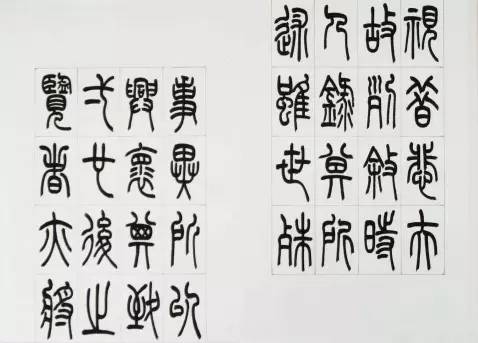 視昔悲夫
故列敘時
人錄其所
述雖世殊
事異所以
興懷其致
弌也後之
覽者亦將